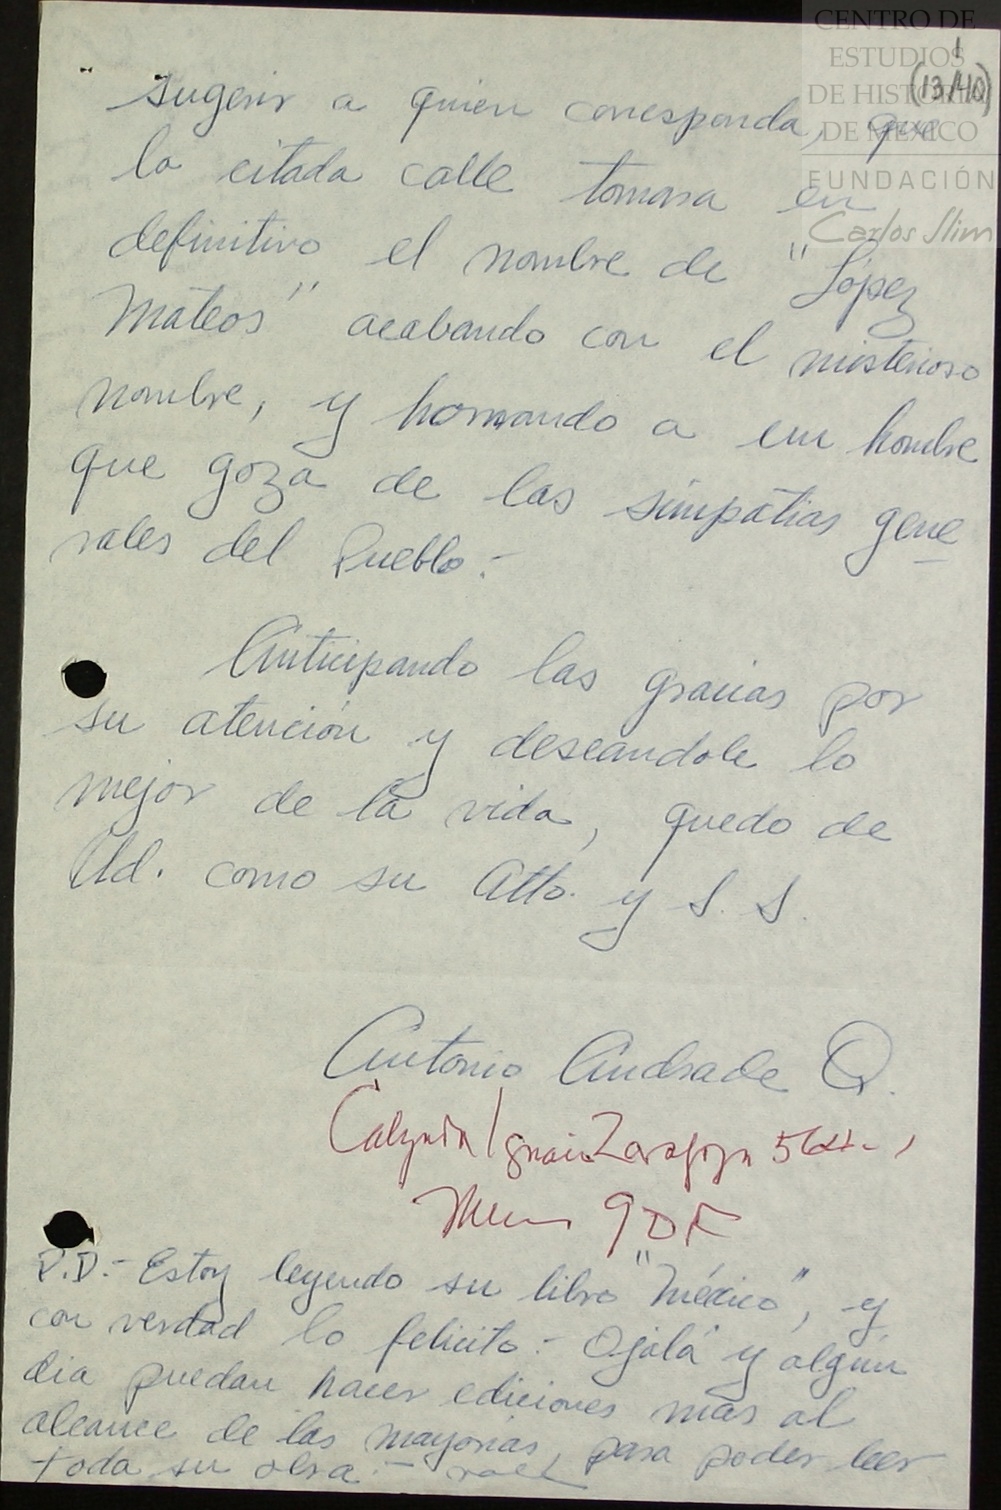 CENTRO DE
ESTUDIOS
DE HISTORIA
DE MÉXICO
FUNDACIÓN
Carlos Slim
1
(13/40)
sugerir a quien corresponda, que
la citada calle tomara en
definitivo el nombre de "López
Mateos" acabando con el misterioso
nombre, y honrando a un hombre
que goza de las simpatias gene
rales del Pueblo.-
Anticipando las gracias por
su atención y deseandole lo
mejor de la vida, quedo de
Ud. como su Atto. y S. S.
Antonio Andrade Q.
Calzada Ignacio Zaragoza
9 D F
P.D.- Estoy leyendo su libro "México", y
con verdad lo felicito.- Ojalá y algún
dia puedan hacer ediciones mas al
alcance de las mayorias, para poder leer
toda su obra.-